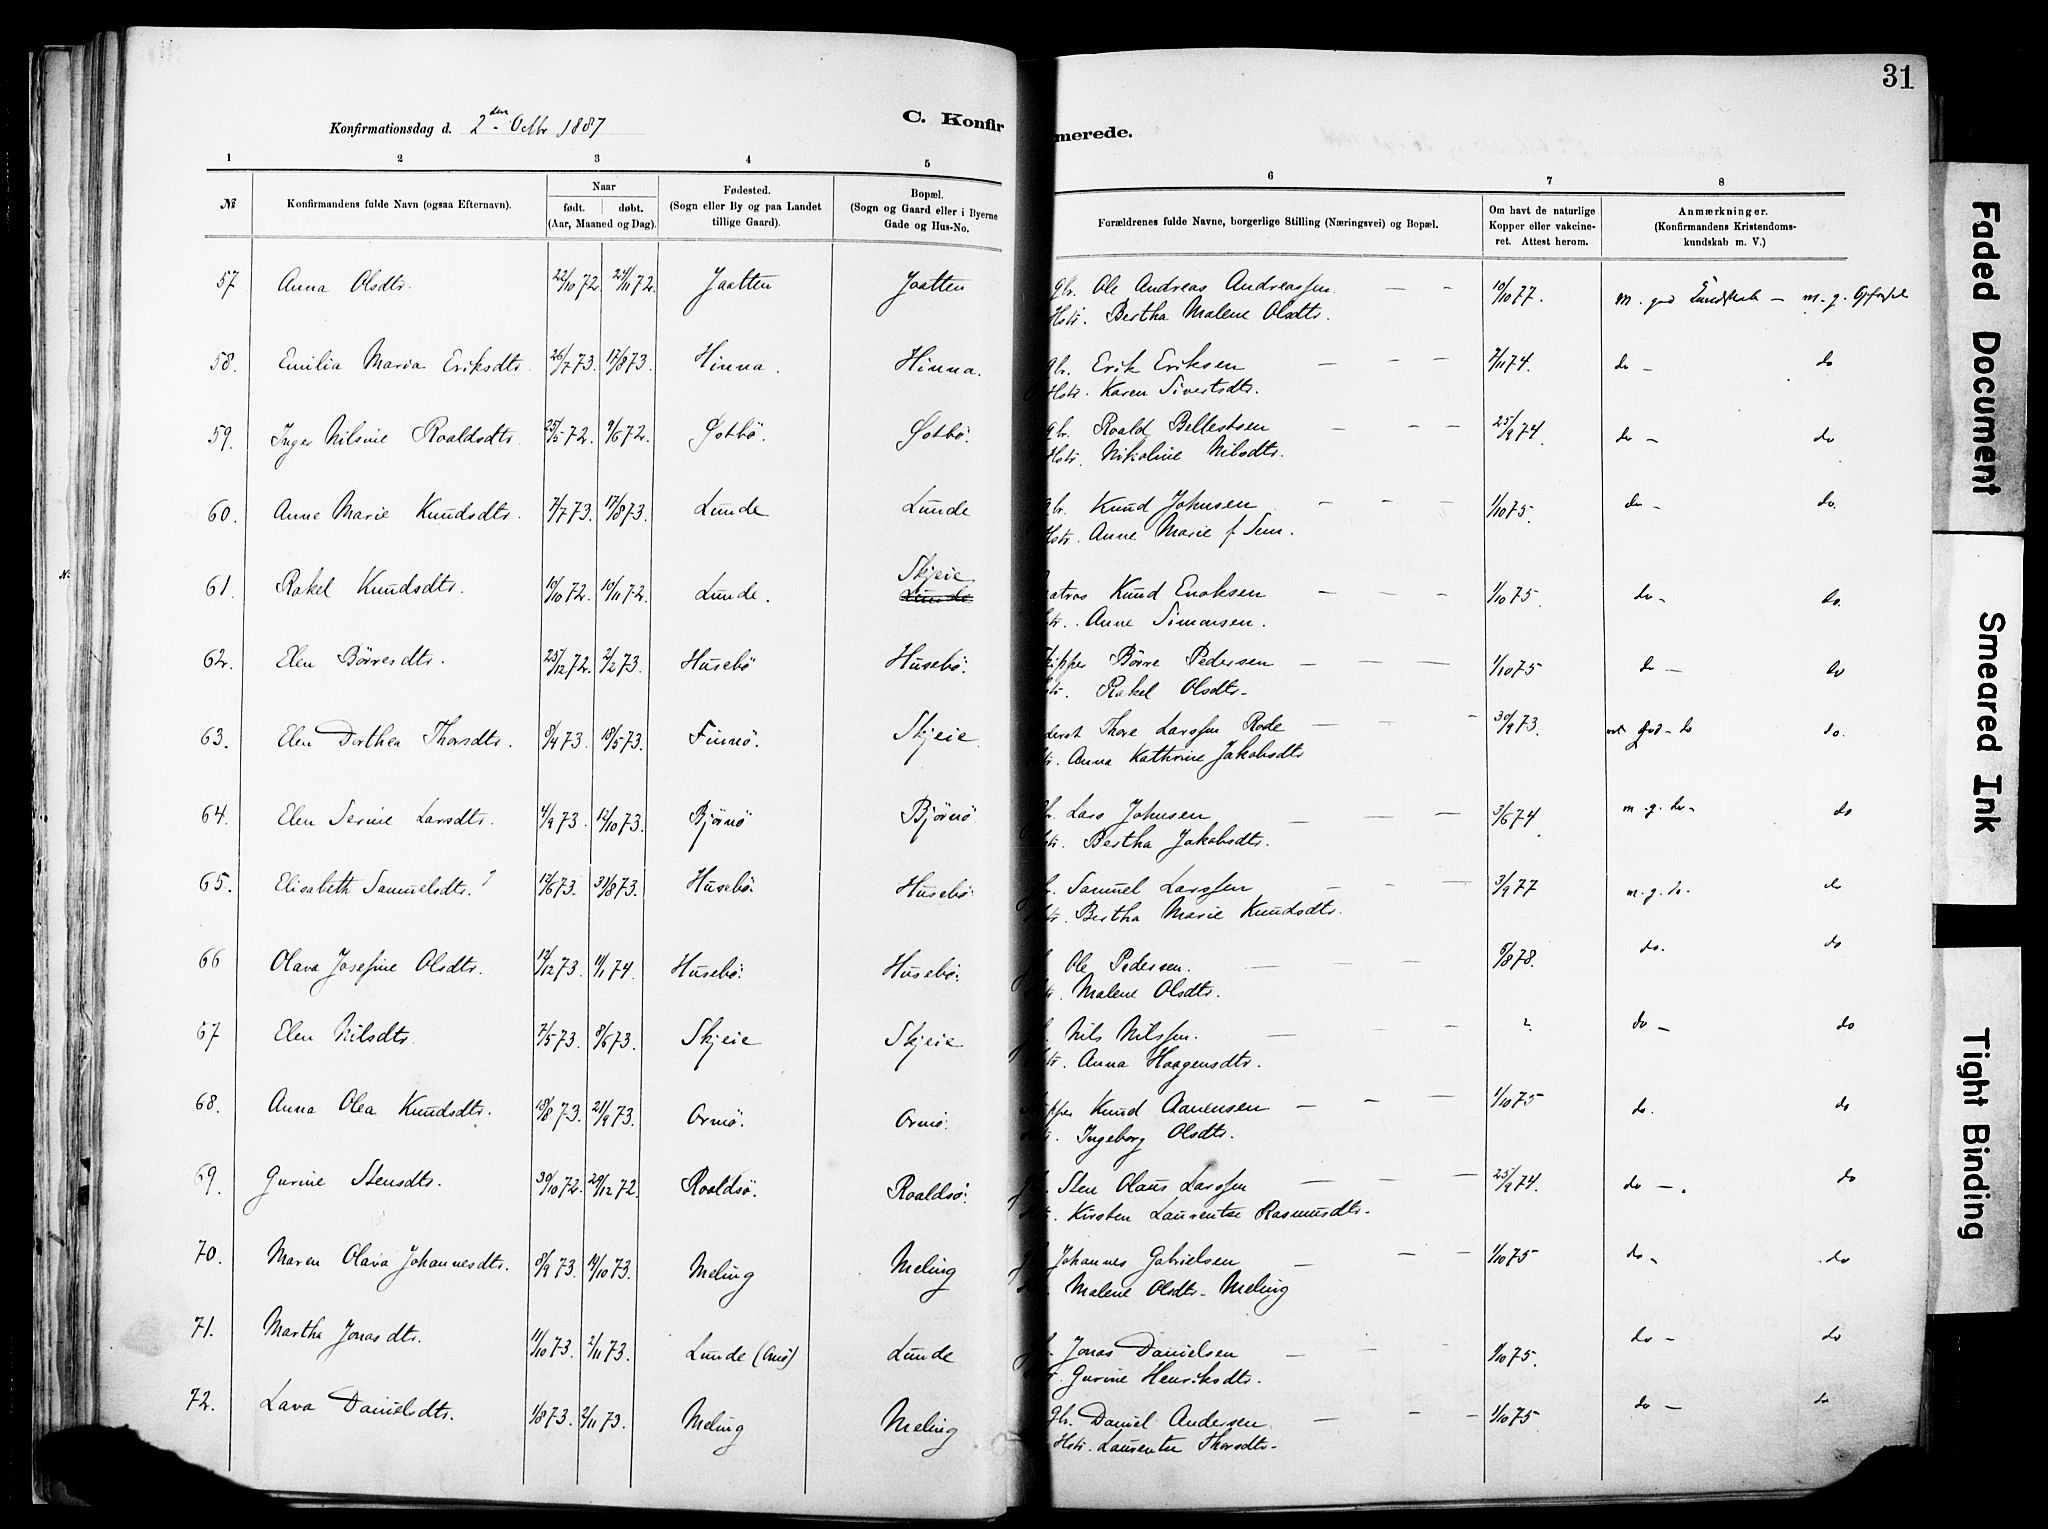 31
Konfirmationsdag d. 2den Octbr 1887
C. Konfirmerede.
1 2 3 4 5 6 7 8
№ Konfirmandens fulde Navn (ogsaa Efternavn). Naar født. døbt. (Aar, Maaned og Dag). Fødested. (Sogn eller By og paa Landet tillige Gaard). Bopæl. (Sogn og Gaard eller i Byerne Gade og Hus-No. Forældrenes fulde Navne, borgerlige Stilling (Næringsvei) og Bopæl. Om havt de naturlige Kopper eller vakcineret. Attest herom. Anmærkninger. (Konfirmandens Kristendomskundskab m. V.)
57 Anna Olsdtr. 22/10 72. 24/11 72. Jaatten Jaatten Gbr. Ole Andreas Andreassen — — 10/10 77. m. god Kundskab — m. g. Opførsel
Hstr. Bertha Malene Olsdtr.
58. Emilia Maria Eriksdtr. 26/7 73. 17/8 73. Hinna. Hinna. Gbr. Erik Eriksen — — — 7/11 74. do — do
Hstr. Karen Sivertsdtr.
59. Inger Nilsine Roaldsdtr. 25/5 72. 9/6 72. Østbø. Østbø. Gbr. Roald Bellestsen — — — 25/9 74. do — do
Hstr. Nikoline Nilsdtr.
60. Anne Marie Knudsdtr. 7/7 73. 17/8 73. Lunde Lunde Gbr. Knud Johnsen — — — 1/10 75. do — do.
Hstr. Anne Marie f Sem.
61. Rakel Knudsdtr. 10/10 72. 10/11 72. Lunde. Skjeie Lunde Matros Knud Enoksen — — — 1/10 75. do — do.
Hstr. Anne Simonsen.
62. Elen Børresdtr. 25/12 72. 2/2 73. Husebø Husebø. Skipper Børre Pedersen — — — 1/10 75 do — do
Hstr. Rakel Olsdtr.
63. Elen Dorthea Thorsdtr. 8/4 73. 18/5 73. Finnø. Skjeie. Thore Larssen Rode — — 30/9 73. god — do do.
Hstr. Anna Kathrine Jakobsdtr
64. Elen Serine Larsdtr. 4/9 73. 12/10 73. Bjørnø Bjørnø Gbr. Lars Johnsen — — — 3/6 74 m. g. do — do
Hstr. Bertha Jakobsdtr.
65. Elisabeth Samuelsdtr. 17/6 73. 31/8 73. Husebø. Husebø. Gbr. Samuel Larssen — — — 3/9 77 m. g. do. do
Hstr. Bertha Marie Knudsdtr.
66 Olava Josefine Olsdtr. 12/12 73. 11/1 74. Husebø. Husebø. Gbr. Ole Pedersen. — — 6/8 78. do. do
Hstr. Malene Olsdtr.
67 Elen Nilsdtr. 7/5 73. 8/6 73. Skjeie Skjeie Gbr. Nils Nilssen. — — ? do — do
Hstr. Anna Haagensdtr.
68. Anna Olea Knudsdtr. 18/8 73. 21/9 73. Ormø. Ormø. Skipper Knud Aanensen — — — 1/10 75 do. do
Hstr. Ingeborg Olsdtr.
69. Gurine Stensdtr. 30/10 72. 29/12 72. Roaldsø. Roaldsø. Gbr. Sten Olaus Larssen — — — 25/9 74. do — . do
Hstr. Kirsten Laurentse Rasmusdtr.
70. Maren Olava Johannesdtr. 8/9 73. 19/10 73. Meling Meling Gbr. Johannes Gabrielsen — — — 1/10 75 do — do
Hstr. Malene Olsdtr. Meling
71. Martha Jonasdtr. 11/10 73. 2/11 73. Lunde (Omø) Lunde Gbr. Jonas Danielsen — — — 1/10 75. do — do
Hstr. Gurine Henriksdtr.
72. Lava Danielsdtr. 1/8 73. 2/11 73. Meling Meling Gbr. Daniel Andersen — — — 1/10 75 do — do
Hstr. Laurentse Thorsdtr.
Faded Document
Smeared Ink
Tight Binding